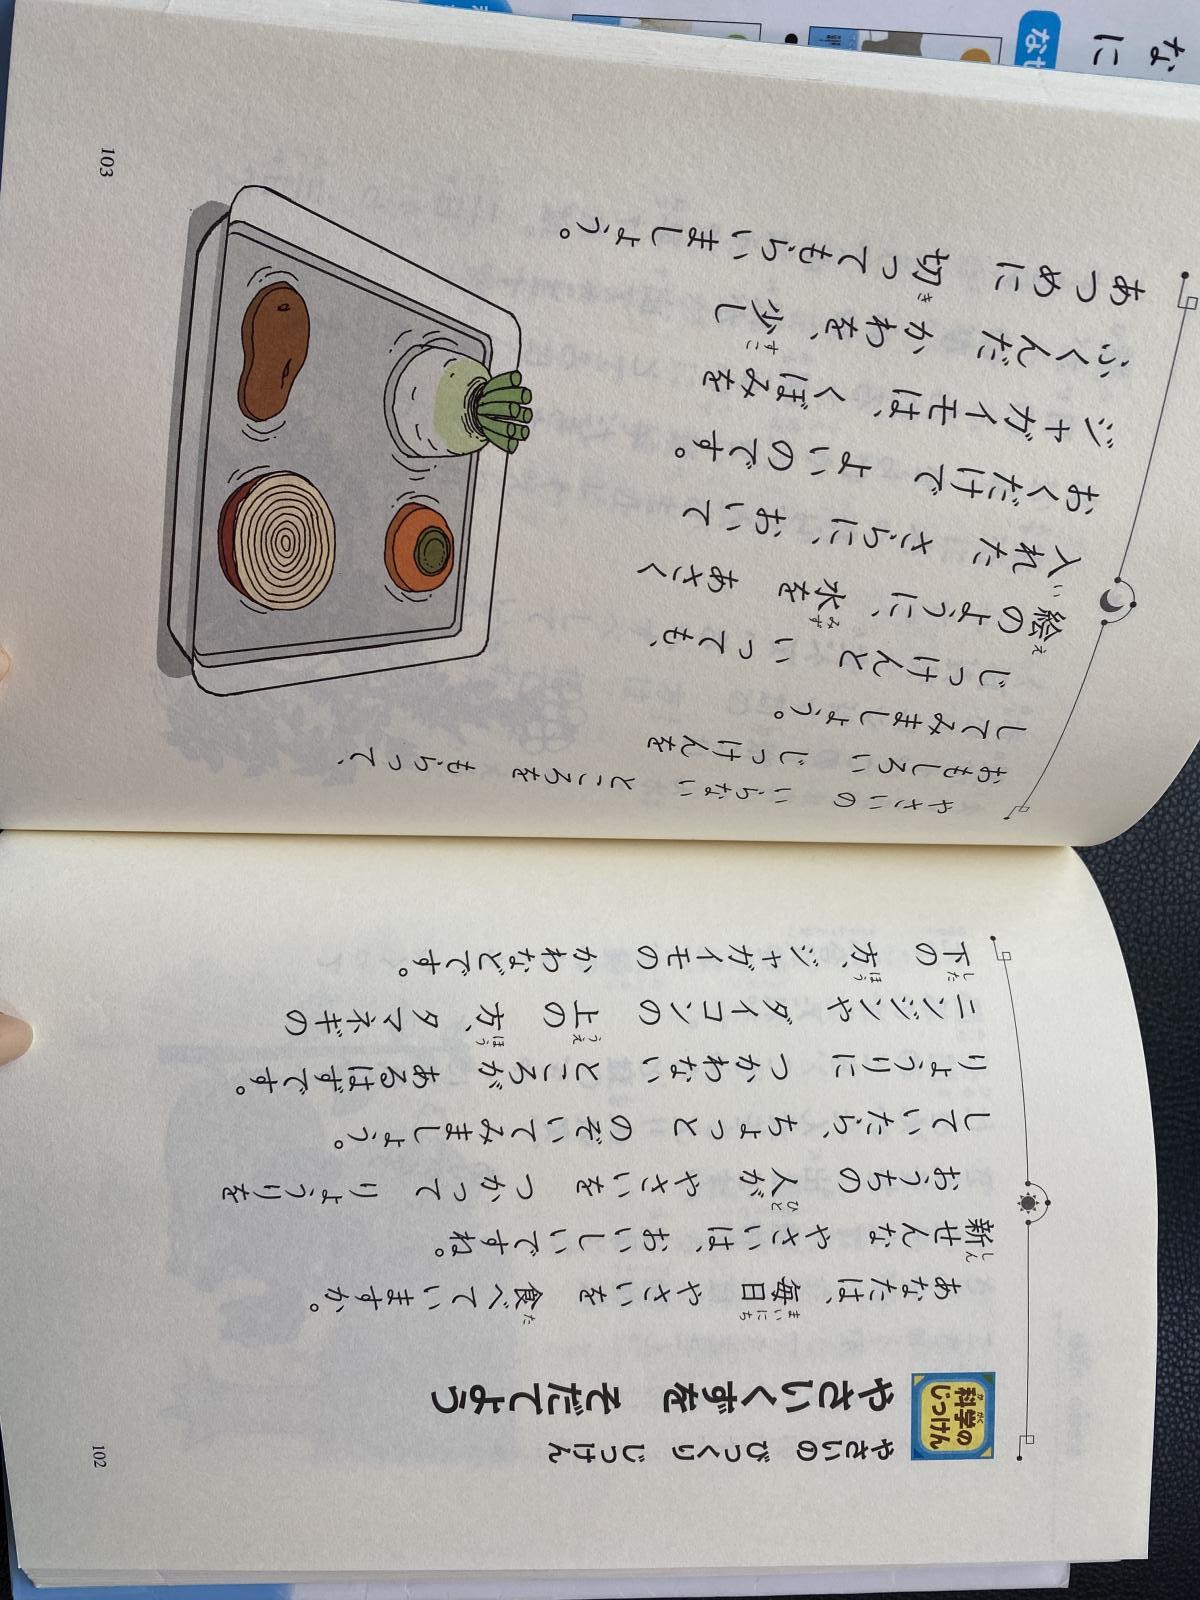 科学の
かがく
じっけん
やさいの びっくり じっけん
やさいくずを そだてよう
あなたは、毎日 やさいを 食べていますか。
まいにち た
新せんな やさいは、おいしいですね。
しん
おうちの 人が やさいを つかって りょうりを
ひと
していたら、ちょっと のぞいてみましょう。
りょうりに つかわない ところが あるはずです。
ニンジンや ダイコンの 上の 方、タマネギの
うえ ほう
下の 方、ジャガイモの かわなどです。
した ほう
102
やさいの いらない ところを もらって、
おもしろい じっけんを
してみましょう。
じっけんと いっても、
絵のように、水を あさく
え みず
入れた さらに、おいて
い
おくだけで よいのです。
ジャガイモは、くぼみを
ふくんだ かわを、少し
すこ
あつめに 切ってもらいましょう。
き
103